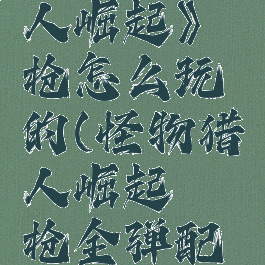 人崛起》
枪怎么玩
的(怪物猎
人崛起
枪全弹配